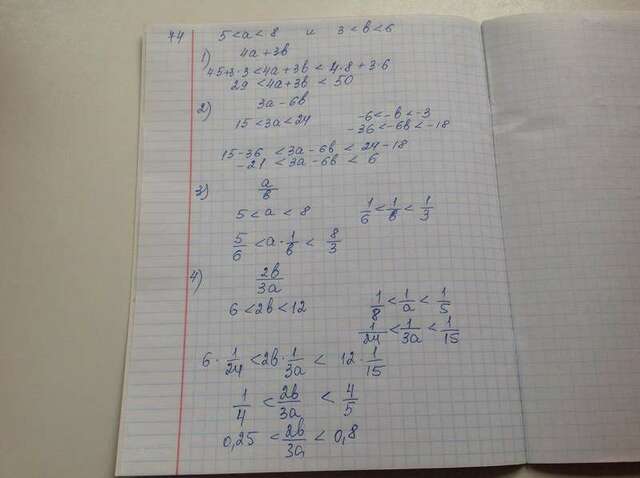 74 5 < a < 8 и 3 < в < 6
1) 4a + 3в
4·5+3·3 < 4a + 3в < 4·8 + 3·6
29 < 4a + 3в < 50
2) 3a - 6в
15 < 3a < 24 -6 < -в < -3
-36 < -6в < -18
15 - 36 < 3a - 6в < 24 - 18
-21 < 3a - 6в < 6
3) a/в
5 < a < 8 1/6 < 1/в < 1/3
5/6 < a · 1/в < 8/3
4) 2в/3a
6 < 2в < 12 1/8 < 1/a < 1/5
1/24 < 1/3a < 1/15
6 · 1/24 < 2в · 1/3a < 12 · 1/15
1/4 < 2в/3a < 4/5
0,25 < 2в/3a < 0,8